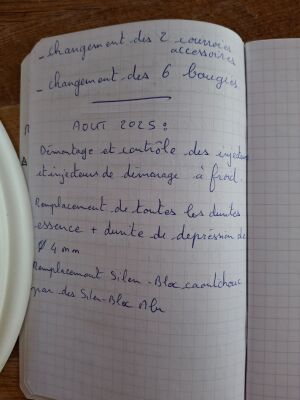 - changement des 2 courroies
accessoires
- changement des 6 bougies
AOUT 2025 :
Démontage et contrôle des injecteurs
et injecteurs de démarage à froid.
Remplacement de toutes les durites
essence + durite de dépression de
4 mm
Remplacement Silen-Bloc caoutchouc
par des Silen-Bloc